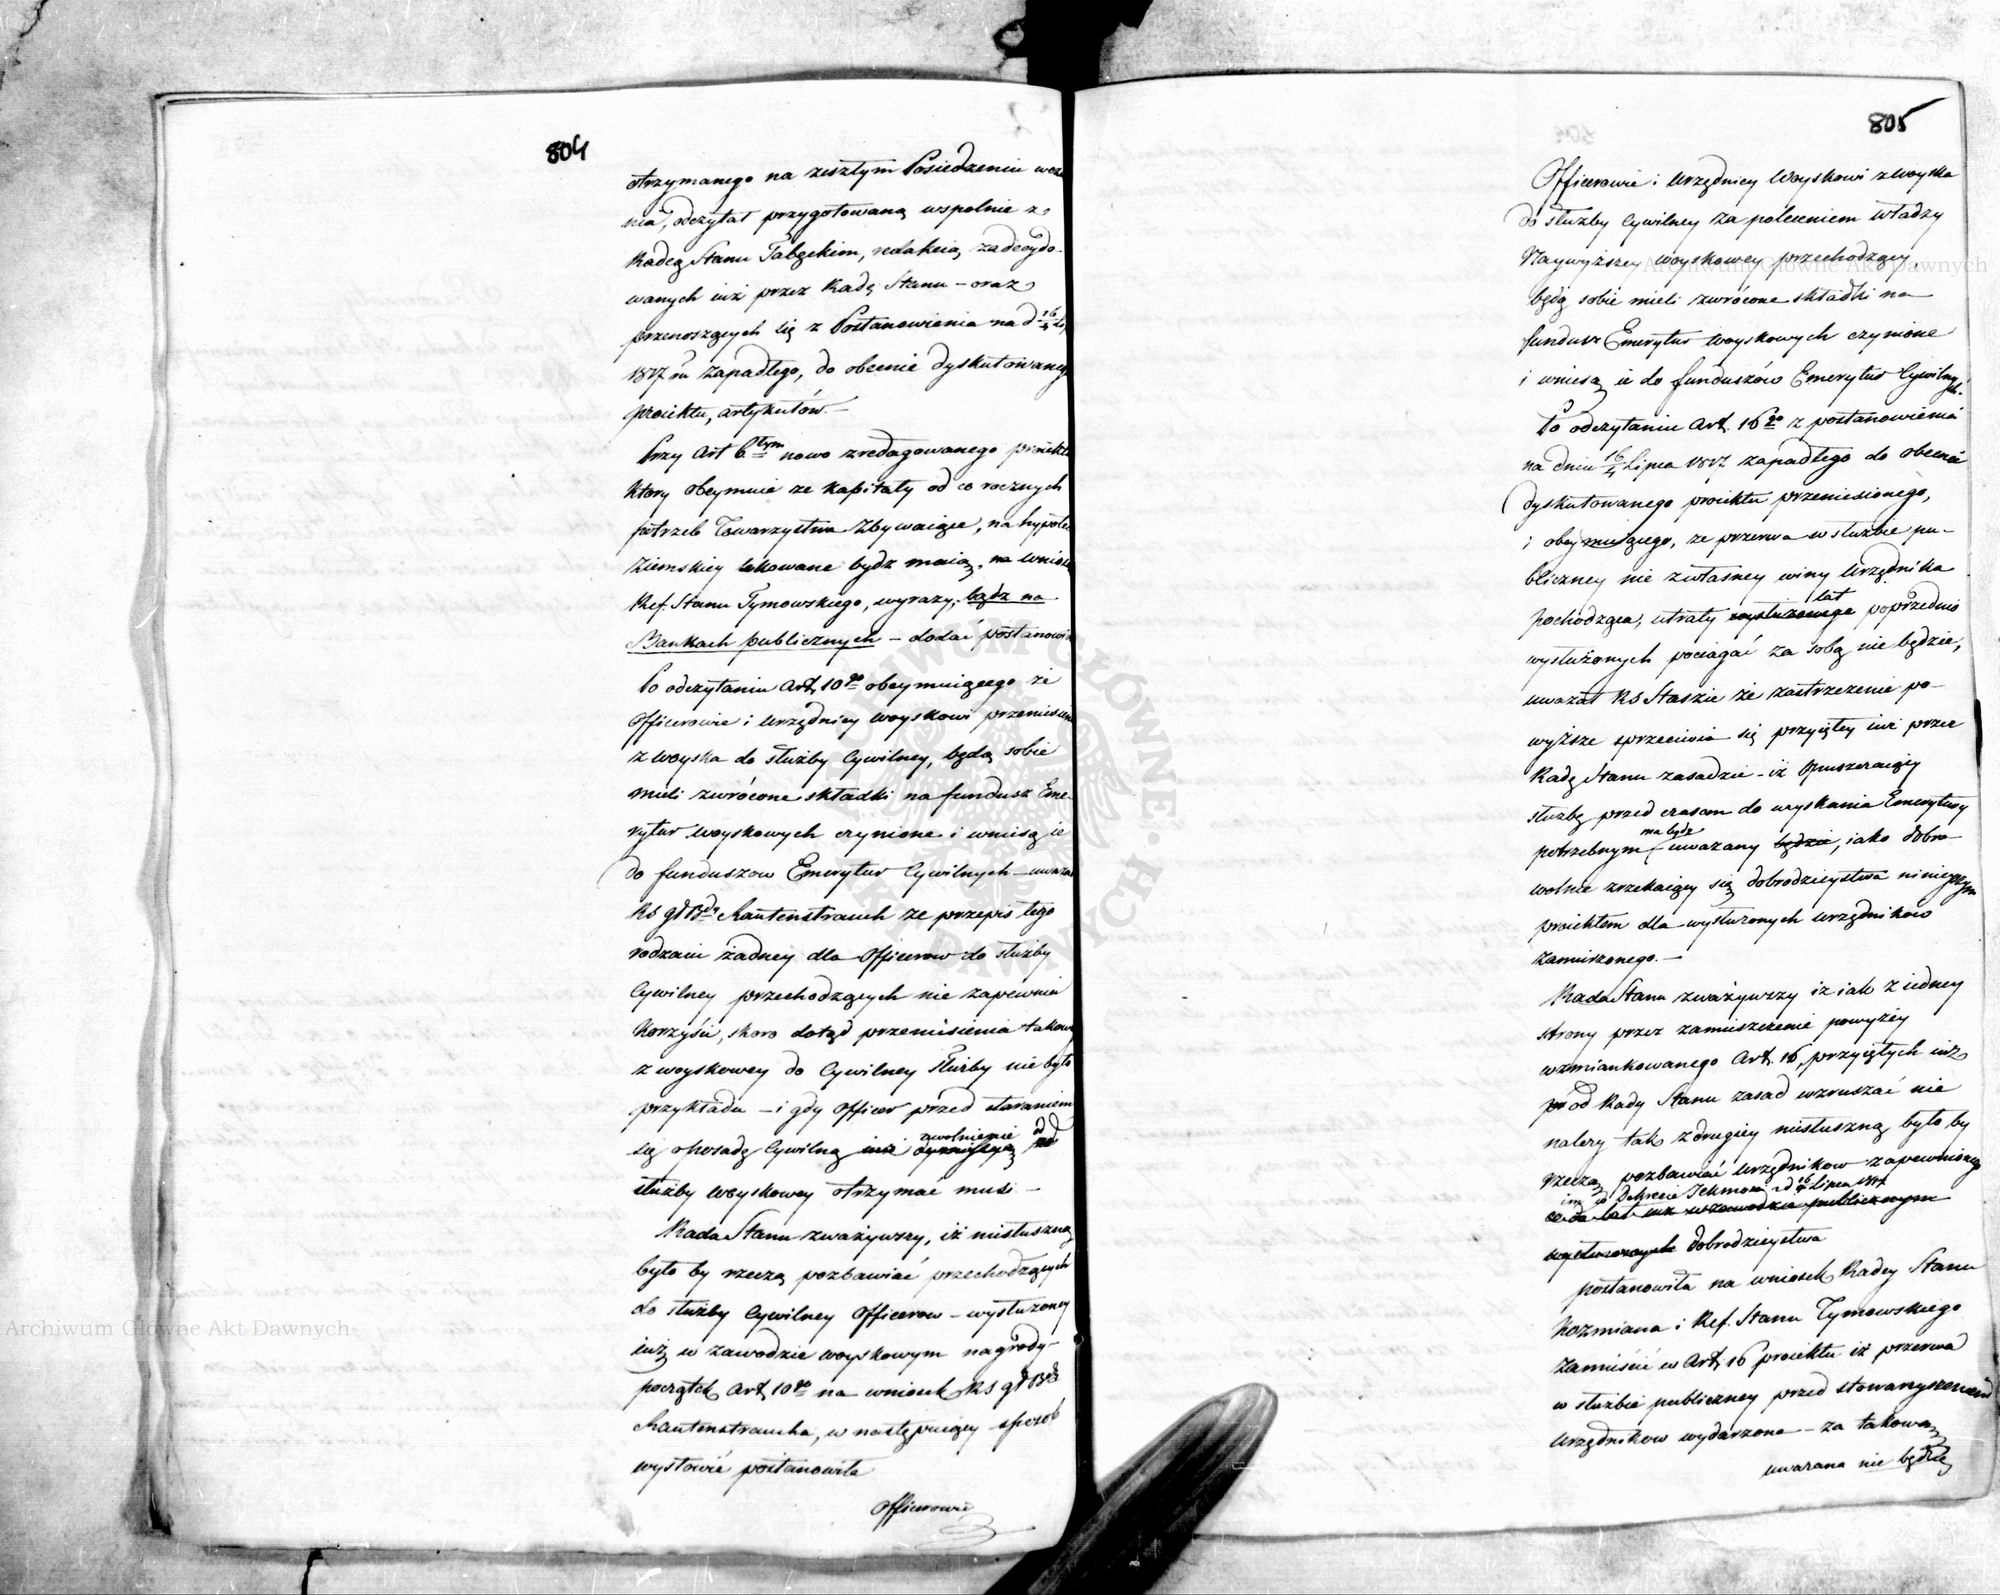 804
otrzymanego na zeszłym Posiedzeniu
nia, odczytał przygotowaną wspolnie z
Radcą Stanu redakcią, zadecydo-
wanych iuż przez Radę Stanu – oraz
przenoszących się z Postanowienia na d 16/4
1817 ru zapadłego, do obecnie dyskutowanego
proiektu, artykułów. –
Przy Art 6tym nowo zredagowanego proiektu
ktory obeymuie że kapitały od co rocznych
potrzeb Towarzystwa zbywaiące, na
Ziemskiey lokowane bydz maią, na wniosek
Ref. Stanu Tymowskiego, wyrazy: bądz na
Bankach publicznych – dodać postanowio
Po odczytaniu Art 10go obeymuiącego że
Officerowie i Urzędnicy woyskowi przeniesieni
z woyska do służby Cywilney, będą sobie
mieli zwrócone składki na fundusz Eme-
rytur Woyskowych czynione i wniosą ie
do funduszow Emerytur Cywilnych – uważał
RS Rautenstrauch że przepis tego
rodzaiu żadney dla Officerow do służby
Cywilney przechodzących nie zapewnia
korzyści, skoro dotąd przeniesienia
z woyskowey do Cywilney służby nie było
przykładu – i gdy Officer przed staraniem
uwolnienie od
się oposadę Cywilną iuż
służby Woyskowey otrzymać musi –
Rada Stanu zważywszy, iż niesłuszną
było by rzeczą pozbawiać przechodzących
do służby Cywilney Officerow – wysłużoney
iuż w zawodzie woyskowym nagrody –
początek Art 10go na wniosek RS
Rautenstraucha, w następuiący sposób
wysłowić postanowiła
Officerowie
805
Officerowie i Urzędnicy Woyskowi z woyska
do służby Cywilney za poleceniem władzy
Naywyższey woyskowey przechodzący,
będą sobie mieli zwrócone składki na
fundusz Emerytur Woyskowych czynione
i wniosą ie do funduszów Emerytur Cywilnych.
Po odczytaniu Art. 16go z postanowienia
na dniu 16/4 Lipca 1817 zapadłego do obecnie
dyskutowanego proiektu przeniesionego,
i obeymuiącego, że przerwa w służbie pu-
bliczney nie z własney winy Urzędnika
lat
pochodząca, utraty wysłużonego poprzednio
wysłużonych pociągać za sobą nie będzie,
uważał RS Staszic że zastrzeżenie po-
wyższe sprzeciwia się przyiętey iuż przez
Radę Stanu zasadzie – iż Opuszczaiący
służbę przed czasem do uzyskania Emerytury
ma bydz
potrzebnym uważany będzie, iako dobro-
wolnie zrzekaiący się dobrodzieystwa ninieyszym
proiektem dla wysłużonych Urzędników
zamierzonego. –
Rada Stanu zważywszy iż iak z iedney
strony przez zamieszczenie powyżey
wzmiankowanego Art. 16, przyiętych iuż
od Rady Stanu zasad wzruszać nie
należy tak z drugiey niesłuszną było by
rzeczą pozbawiać Urzędnikow zapewnionego
im Dekrecie Lipca 1817
lat iuż w zawodzie publicznym
wysłużonych dobrodzieystwa
postanowiła na wniosek Radcy Stanu
Kozmiana i Ref. Stanu Tymowskiego
zamieścić w Art 16 proiektu iż przerwa
w służbie publiczney przed stowarzyszeniem
Urzędników wydarzona – za takową
uważana nie będzie
Archiwum Główne Akt Dawnych
Archiwum Główne Akt Dawnych
ARCHIWUM GŁÓWNE AKT DAWNYCH